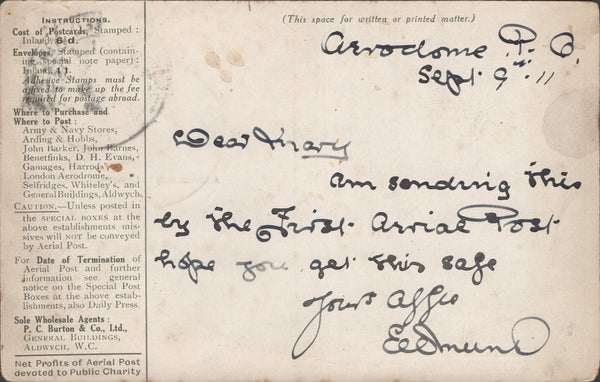 INSTRUCTIONS.
Cost of Postcards, Stamped :
Inland, 6d.
Envelopes, Stamped (contain-
ing special note paper) :
Inland, 1/1.
Adhesive Stamps must be
affixed to make up the fee
required for postage abroad.
Where to Purchase and
Where to Post :
Army & Navy Stores,
Arding & Hobbs,
John Barker, John Barnes,
Benetfinks, D. H. Evans,
Gamages, Harrods,
London Aerodrome,
Selfridges, Whiteley's, and
General Buildings, Aldwych.
CAUTION.—Unless posted in
the SPECIAL BOXES at the
above establishments mis-
sives will NOT be conveyed
by Aerial Post.
For Date of Termination of
Aerial Post and further
information see general
notice on the Special Post
Boxes at the above estab-
lishments, also Daily Press.
Sole Wholesale Agents :
P. C. Burton & Co., Ltd.,
GENERAL BUILDINGS,
ALDWYCH, W.C.
Net Profits of Aerial Post
devoted to Public Charity
(This space for written or printed matter.)
Aerodome P. O.
Sept 9th 11
Dear Mary
Am sending this
by the First Aerial Post
hope you get this safe
Yours Affec
Edmund